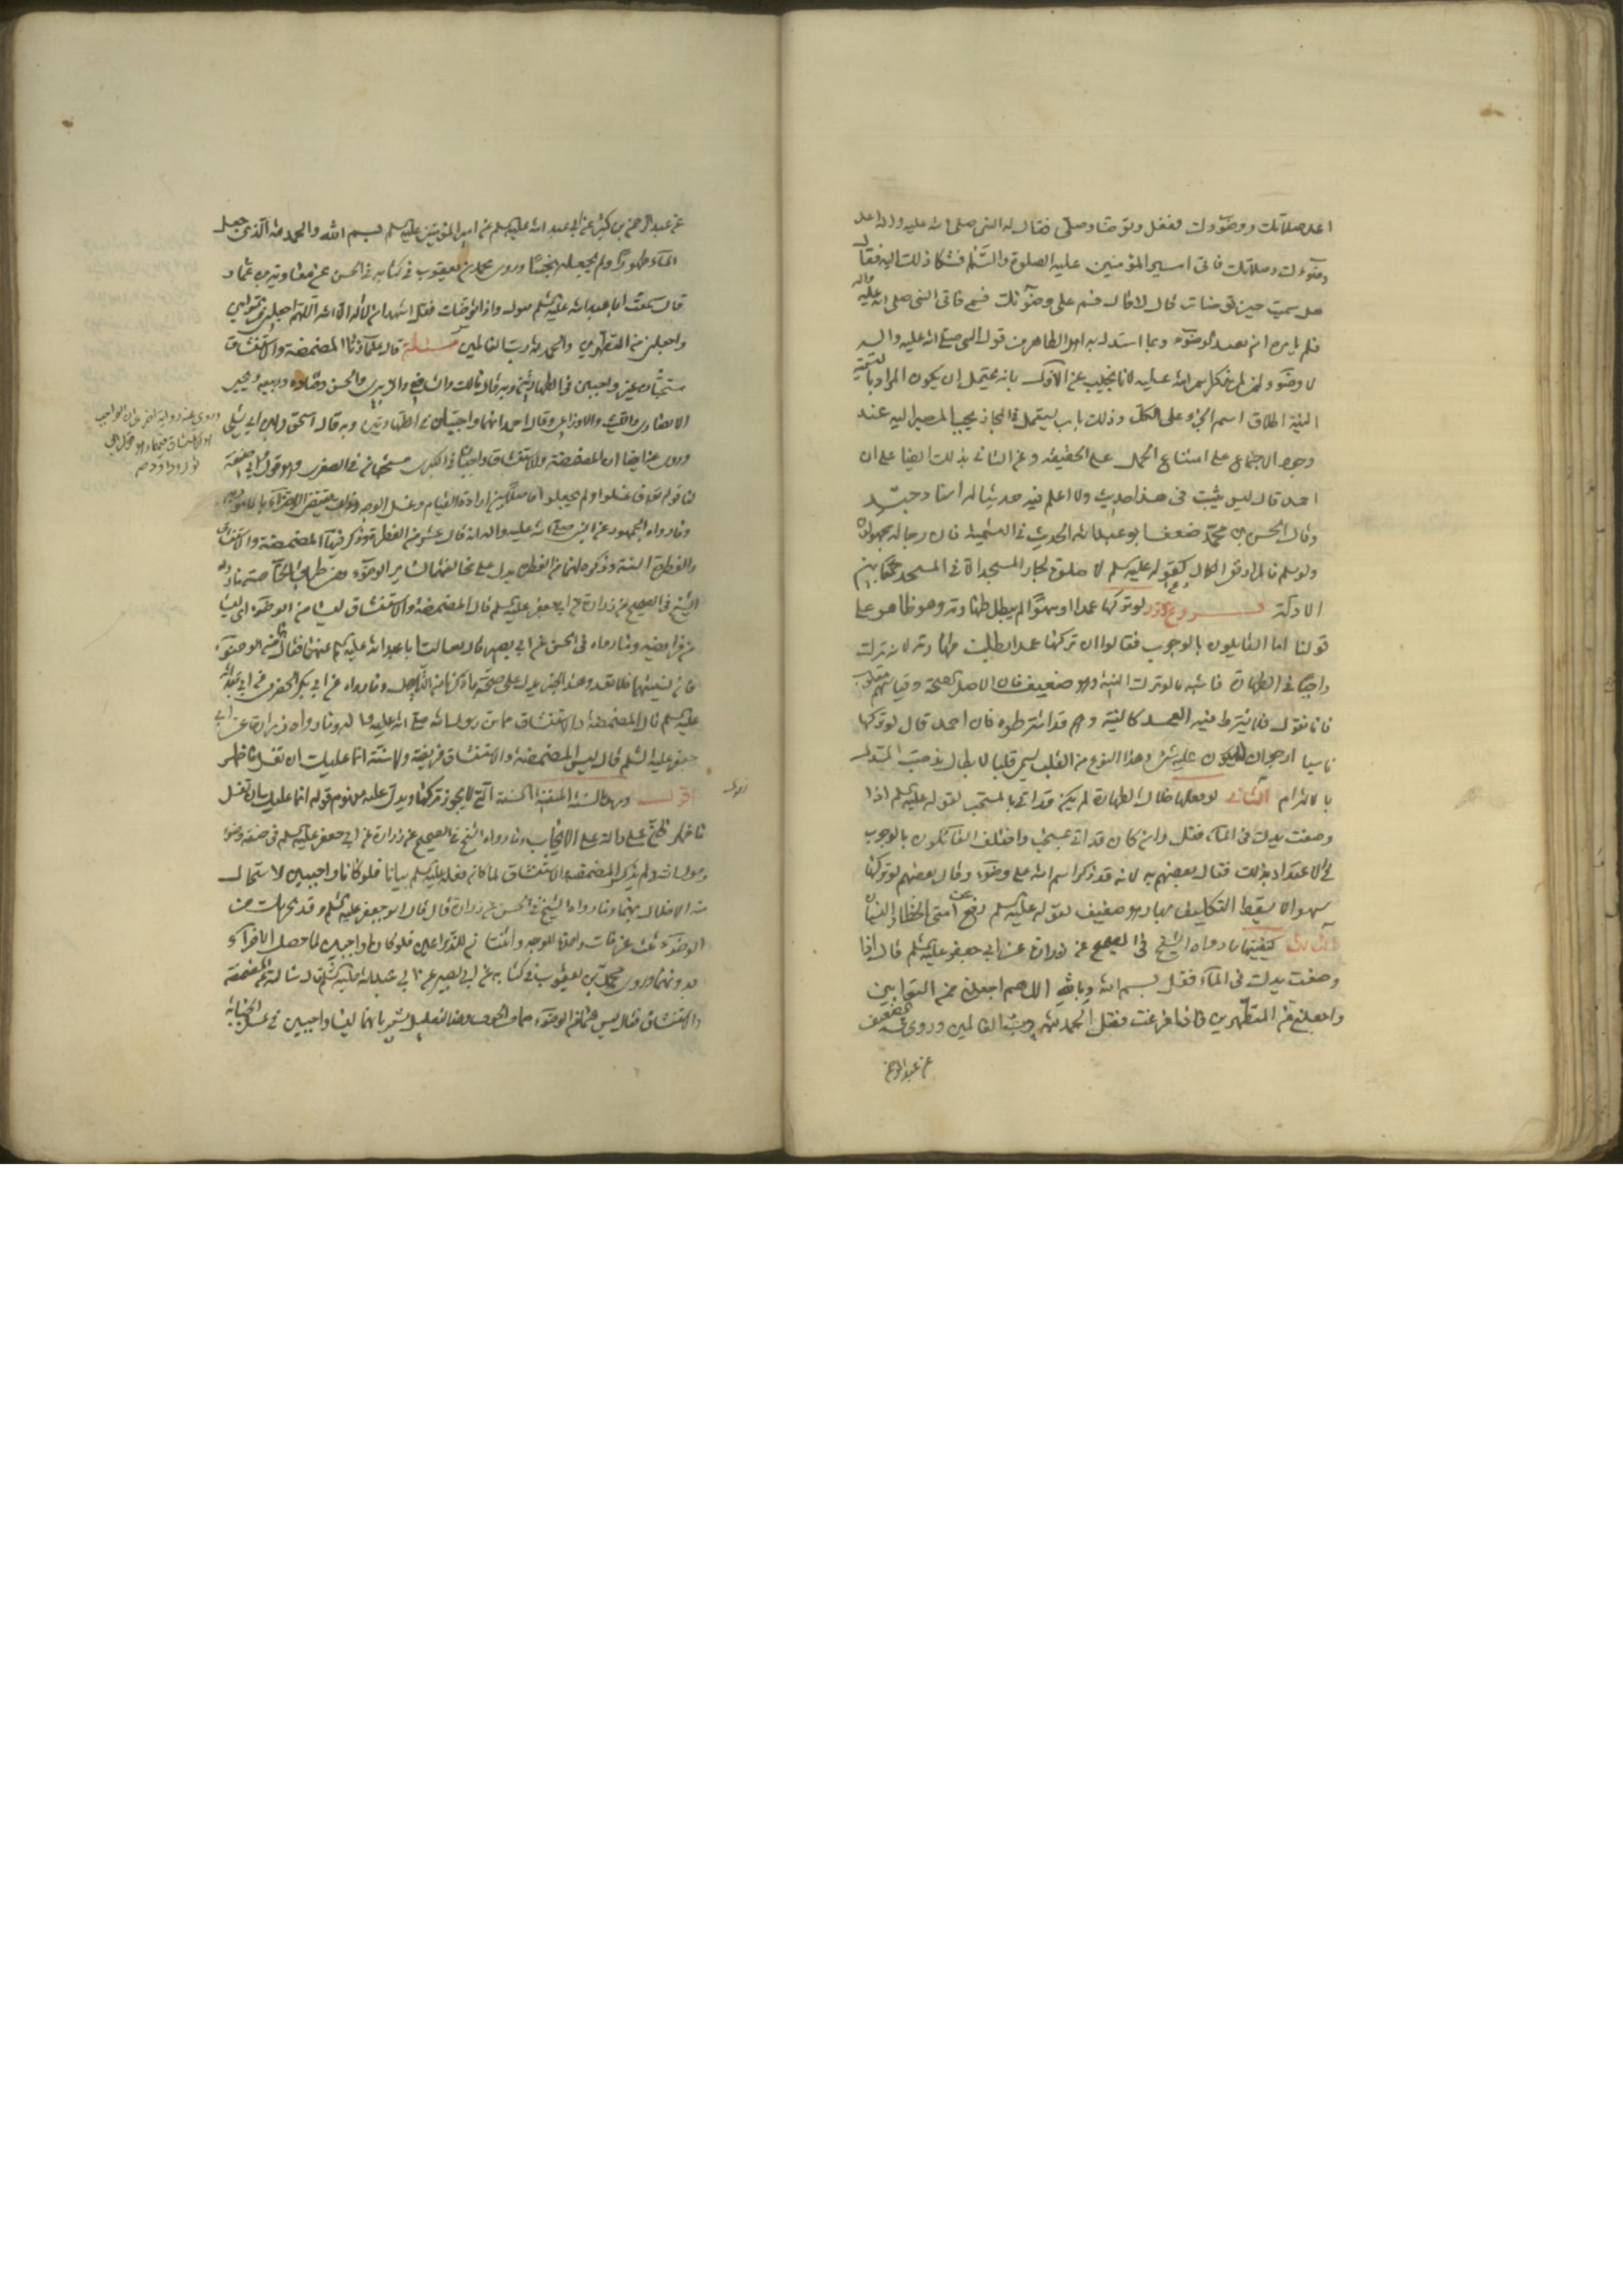 اعد صلاتك ووضوءك ففعل وتوضأ وصلى فقال له النبي صلى الله عليه واله اعد
وضوءك وصلاتك فاتى امير المؤمنين عليه الصلوة والسلم فشكا ذلك اليه فقال
هل سميت حين توضأت قال لا قال فسم على وضوئك فسمى فاتى النبي صلى الله عليه واله
فلم يامره ان يعيد الوضوء وبما استدل به اهل الظاهر من قول النبي صلى الله عليه واله
لا وضوء لمن لم يذكر اسم الله عليه لانا نجيب عن الاول بانه يحتمل ان يكون المراد بالتسمية
النية اطلاق اسم الجزء على الكل وذلك باب يستعمل في المجاز يجب المصير اليه عند
وجود الاجماع على امتناع الحمل على الحقيقة وعن الثاني بذلك ايضا على ان
احمد قال ليس يثبت في هذا حديث ولا اعلم فيه حديثا له اسناد جيد
وقال الحسن بن محمد ضعف ابو عبد الله الحديث في التسمية فان رجاله مجهولون
ولو سلم فالمراد نفي الكمال كقوله عليه السلم لا صلوة لجار المسجد الا في المسجد جمعا بين
الادلة فروع الاول لو تركها عمدا او سهوا لم يبطل طهارته وهو ظاهر على
قولنا اما القايلون بالوجوب فقالوا ان تركها عمدا بطلت طهارته لانه ترك
واجبا في الطهارة فاشبه ما لو ترك النية وهو ضعيف فان الاصل الصحة وقياسهم مقلوب
فانا نقول فلا يشترط فيه العمد كالنية وهم قد اشترطوه فان احمد قال لو تركها
ناسيا ارجو ان لا يكون عليه شئ وهذا النوع من القلب يسمى قلبا لابطال مذهب المستدل
بالالتزام الثاني لو فعلها خلال الطهارة لم يكن قد اتى بالمستحب لقوله عليه السلم اذا
وضعت يدك في الماء فقل وان كان قد اتى بمستحب واختلف القائلون بالوجوب
في الاعتداد بذلك فقال بعضهم به لانه قد ذكر اسم الله على وضوء وقال بعضهم لو تركها
سهوا لا يسقط التكليف بها وهو ضعيف لقوله عليه السلم رفع عن امتي الخطا والنسيان
الثالث كيفيتها ما رواه الشيخ في الصحيح عن زرارة عن ابي جعفر عليه السلم قال اذا
وضعت يدك في الماء فقل بسم الله وبالله اللهم اجعلني من التوابين
واجعلني من المتطهرين فاذا فرغت فقل الحمد لله رب العالمين وروى في الضعيف
عن عبد الرحمن
عن عبد الرحمن بن كثير عن ابي عبد الله عليه السلم عن امير المؤمنين عليه السلم بسم الله والحمد لله الذي جعل
الماء طهورا ولم يجعله نجسا وروى محمد بن يعقوب في كتابه في الحسن عن معاوية بن عمار
قال سمعت ابا عبد الله عليه السلم يقول واذا توضأت فقل اشهد ان لا اله الا الله اللهم اجعلني من التوابين
واجعلني من المتطهرين والحمد لله رب العالمين مسئلة قال علماؤنا المضمضة والاستنشاق
مستحبان غير واجبين في الطهارتين وبه قال مالك والشافعي والزهري والحسن وقتادة وربيعة ويحيى
الانصاري والليث والاوزاعي وقال احمد انهما واجبتان في الطهارتين وبه قال اسحق وابن ابي ليلى
وروى عنه ايضا ان المضمضة والاستنشاق واجبتان في الكبرى مستحبان في الصغرى وهو قول ابي حنيفة
وما رواه الجمهور عن النبي صلى الله عليه واله انه قال عشر من الفطرة وذكر فيها المضمضة والاستنشاق
والفطرة السنة وذكره لهما من الفطرة يدل على مخالفتهما لساير الوضوء ومن طريق الخاصة ما رواه
الشيخ في الصحيح عن زرارة عن ابي جعفر عليه السلم قال المضمضة والاستنشاق ليسا من الوضوء اي ليسا
من فرايضه وما رواه في الحسن عن ابي بصير قال سالت ابا عبد الله عليه السلم عنهما فقال هما من الوضوء
فان نسيتهما فلا تعد وهذا الخبر يدل على صحة ما ذكرنا من التاويل وما رواه عن ابي بكر الحضرمي عن ابي عبد الله
عليه السلم قال المضمضة والاستنشاق مما سن رسول الله صلى الله عليه واله وما رواه زرارة عن ابي
جعفر عليه السلم قال ليس المضمضة والاستنشاق فريضة ولا سنة انما عليك ان تغسل ما ظهر
اقول ومراده بالسنة المنفية السنة التي لا يجوز تركها ويدل عليه مفهوم قوله انما عليك ان تغسل
ما ظهر فان على دالة على الايجاب وما رواه الشيخ في الصحيح عن زرارة عن ابي جعفر عليه السلم في صفة وضوء
رسول الله ولم يذكر المضمضة والاستنشاق لما كان فعله عليه السلم بيانا فلو كانا واجبين لاستحال
منه الاخلال بهما وما رواه الشيخ في الحسن عن زرارة قال قال ابو جعفر عليه السلم وقد يجزيك من
الوضوء ثلث غرفات واحدة للوجه واثنتان للذراعين فلو كانا واجبين لما حصل الاجزاء
بدونهما وروى محمد بن يعقوب في كتابه عن ابي بصير عن ابي عبد الله عليه السلم قال سالته عن المضمضة
والاستنشاق فقال ليس هما من الوضوء هما من الجوف وهذا التعليل يشعر بانهما ليسا واجبين في غسل الجنابة